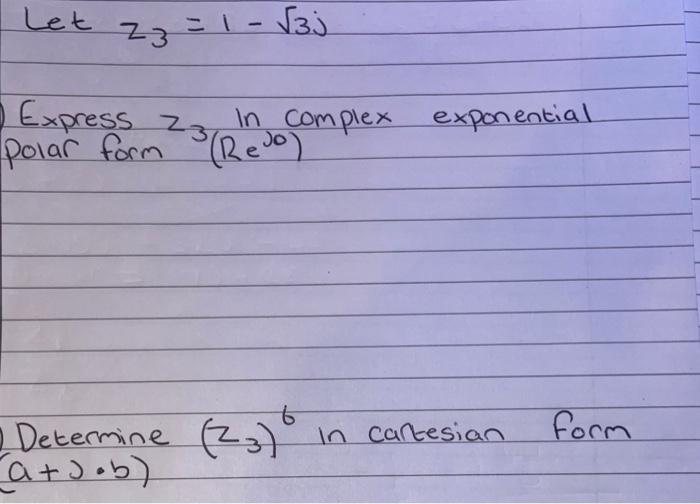 Let z₃ = 1 - √3j
) Express z₃ in complex exponential
polar form (Re^jθ)
) Determine (z₃)⁶ in cartesian form
(a + j•b)